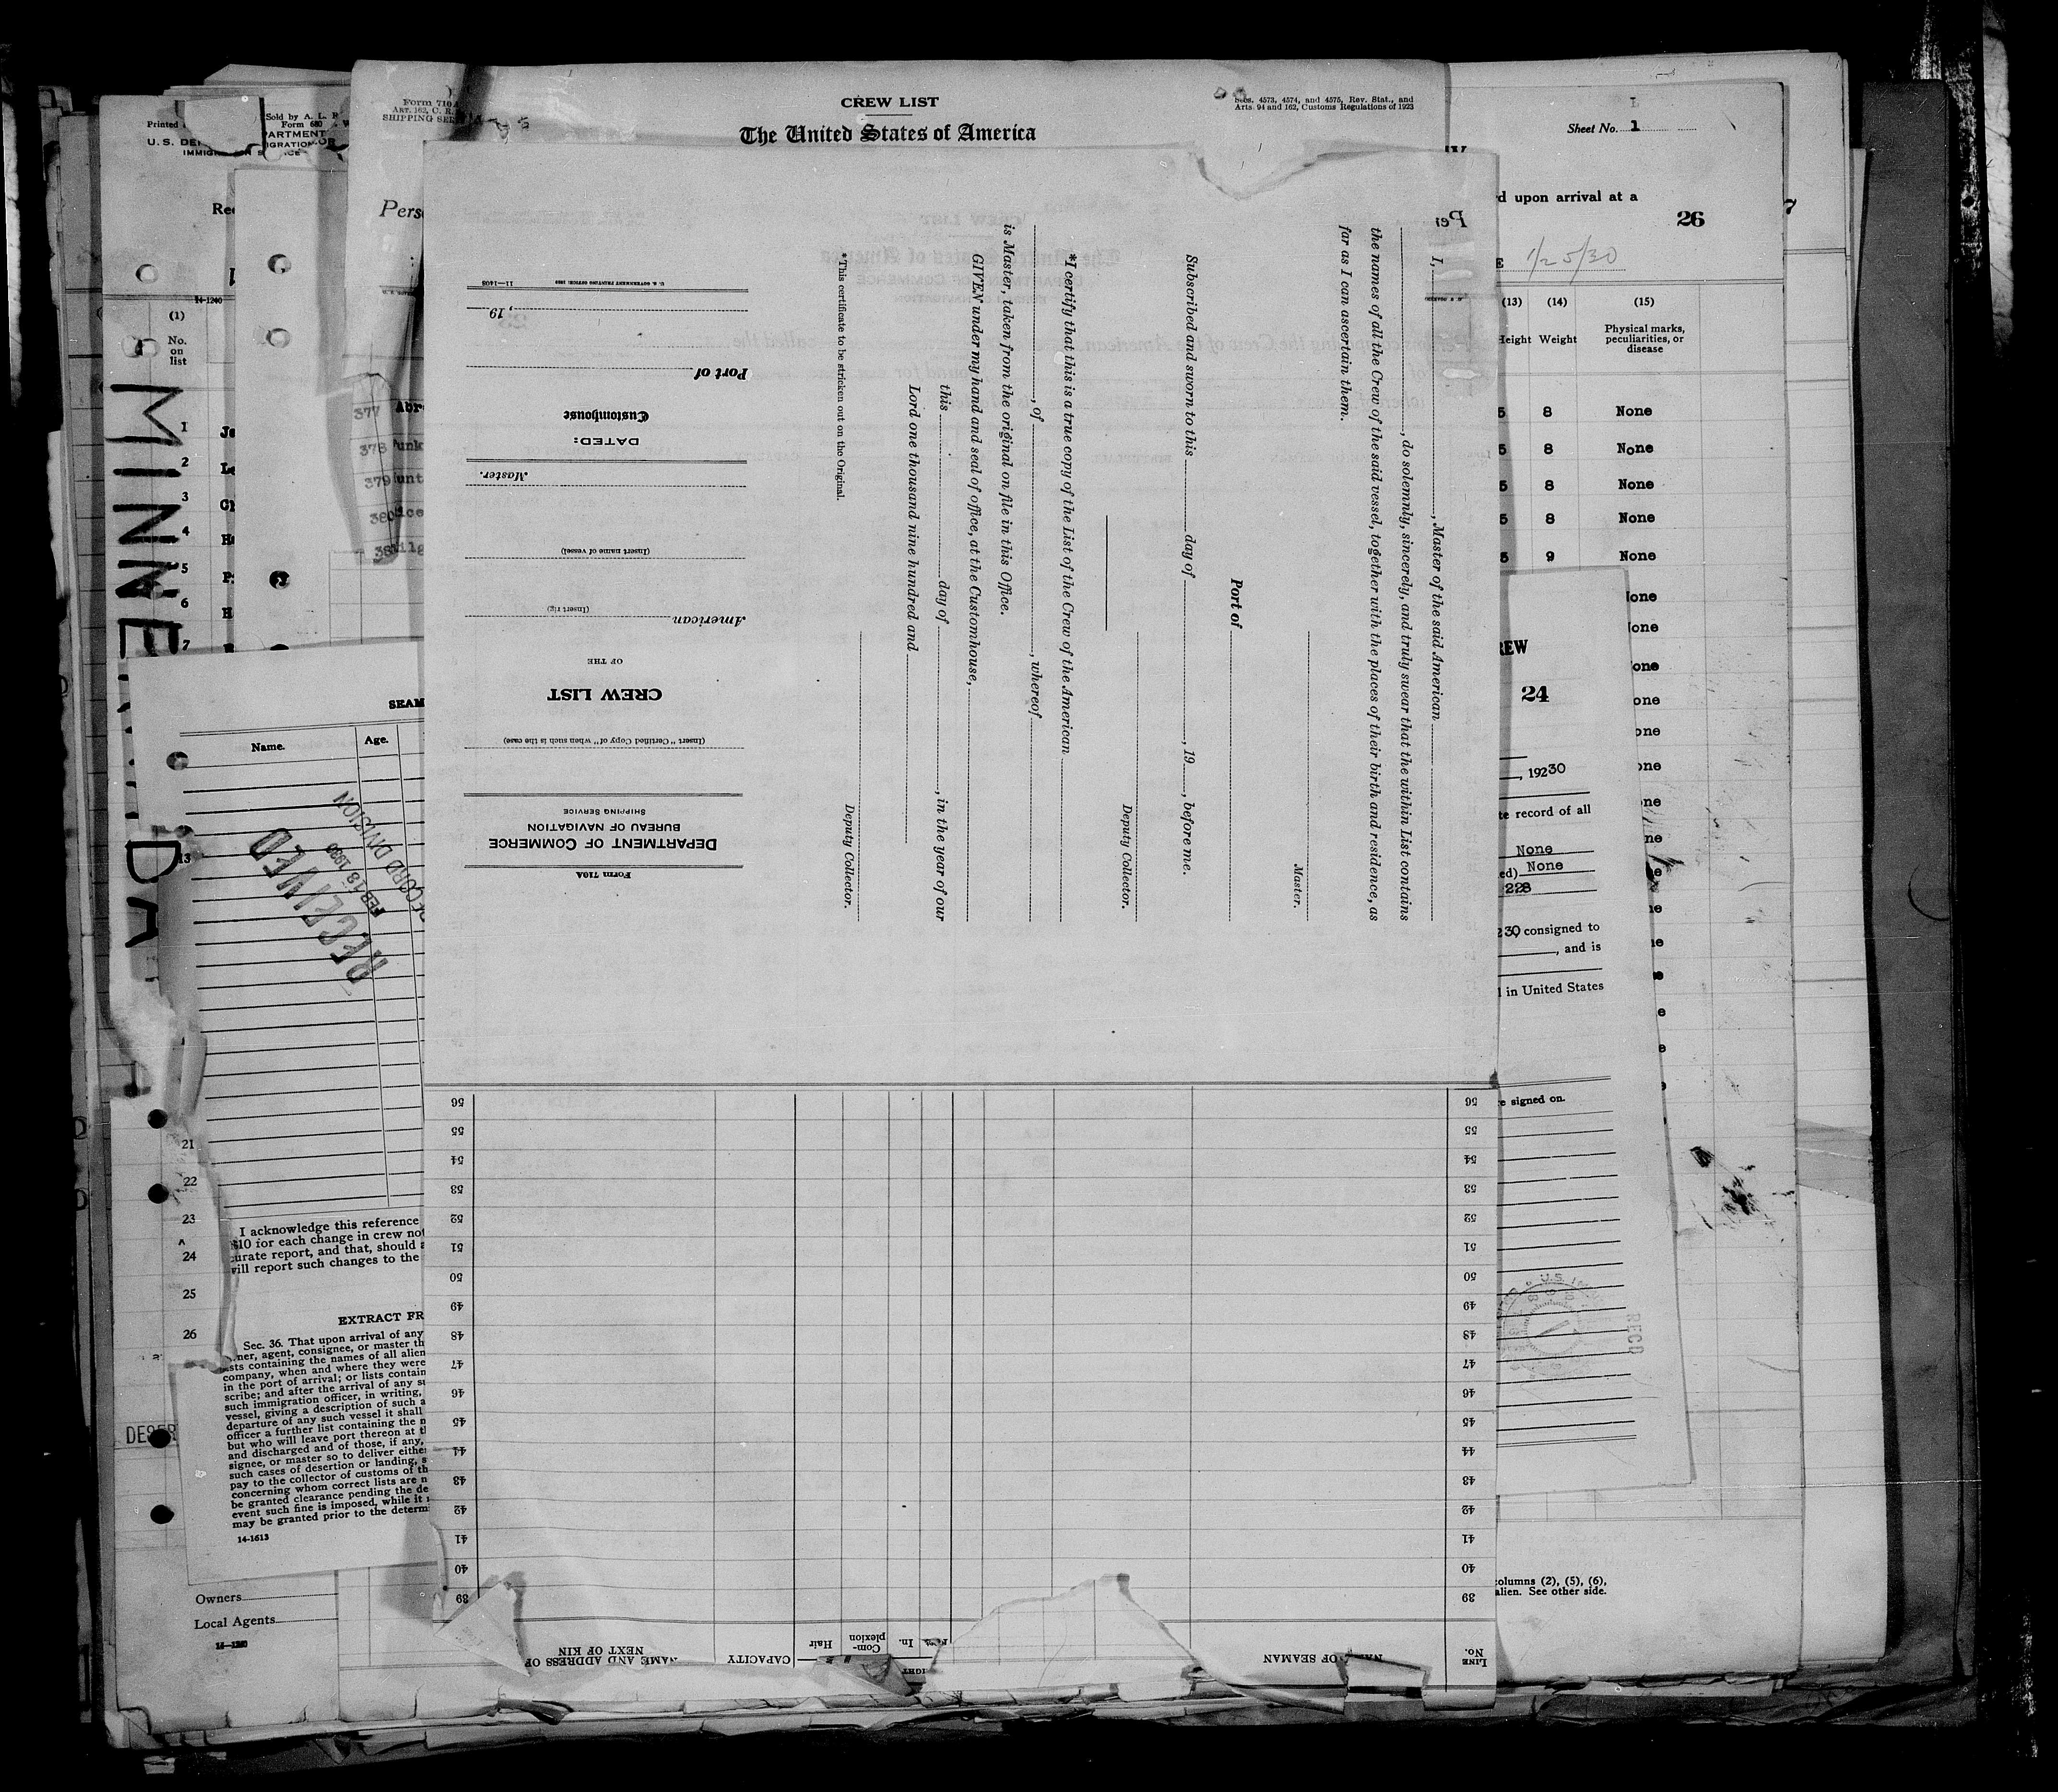 Form 710A
ART. 162, C. R.
SHIPPING SER
CREW LIST
The United States of America
Secs. 4573, 4574, and 4575, Rev. Stat., and
Arts. 94 and 162, Customs Regulations of 1923
Pers
Printed
U.S. DE
IMMIG
Sold by A. L. P
Form 680
PARTMENT
IGRATION
14-1240
(1)
No.
on
list
MINNE
DA
1
2
3
4
5
6
7
13
21
22
23
24
25
26
377
378
379
380
Sheet No. 1
rd upon arrival at a
26
1/25/30
(13) (14) (15)
Height Weight Physical marks,
peculiarities, or
disease
5 8 None
5 8 None
5 8 None
5 8 None
5 9 None
REW
24
, 19230
te record of all
None
ed) None
228
230 consigned to
, and is
in United States
e signed on.
RECD
columns (2), (5), (6),
alien. See other side.
SEAM
Name. Age.
RECEIVED
FEB 18 1930
RECORD DIVISION
I acknowledge this reference
$10 for each change in crew not
curate report, and that, should
will report such changes to the
EXTRACT FR
Sec. 36. That upon arrival of any
ner, agent, consignee, or master th
sts containing the names of all alien
company, when and where they were
in the port of arrival; or lists contain
scribe; and after the arrival of any su
such immigration officer, in writing,
vessel, giving a description of such a
departure of any such vessel it shall
officer a further list containing the n
but who will leave port thereon at t
and discharged and of those, if any,
signee, or master so to deliver either
such cases of desertion or landing, s
pay to the collector of customs of th
concerning whom correct lists are n
be granted clearance pending the de
event such fine is imposed, while it
may be granted prior to the determ
14-1613
Owners
Local Agents
I, , Master of the said American
, do solemnly, sincerely, and truly swear that the within List contains
the names of all the Crew of the said vessel, together with the places of their birth and residence, as
far as I can ascertain them.
Master.
Port of
Subscribed and sworn to this day of , 19 , before me.
Deputy Collector.
*I certify that this is a true copy of the List of the Crew of the American
, of , whereof
is Master, taken from the original on file in this Office.
GIVEN under my hand and seal of office, at the Customhouse,
this day of , in the year of our
Lord one thousand nine hundred and
Deputy Collector.
*This certificate to be stricken out on the Original.
Form 710A
DEPARTMENT OF COMMERCE
BUREAU OF NAVIGATION
SHIPPING SERVICE
(Insert "Certified Copy of" when such is the case)
CREW LIST
OF THE
American
(Insert rig)
(Insert name of vessel)
Master.
DATED:
Customhouse
Port of
, 19
U. S. GOVERNMENT PRINTING OFFICE: 1929 11—1408
LINE
No.
OF SEAMAN
In.
Com-
plexion
Hair
CAPACITY
NAME AND ADDRESS OF
NEXT OF KIN
39 39
40 40
41 41
42 42
43 43
44 44
45 45
46 46
47 47
48 48
49 49
50 50
51 51
52 52
53 53
54 54
55 55
56 56